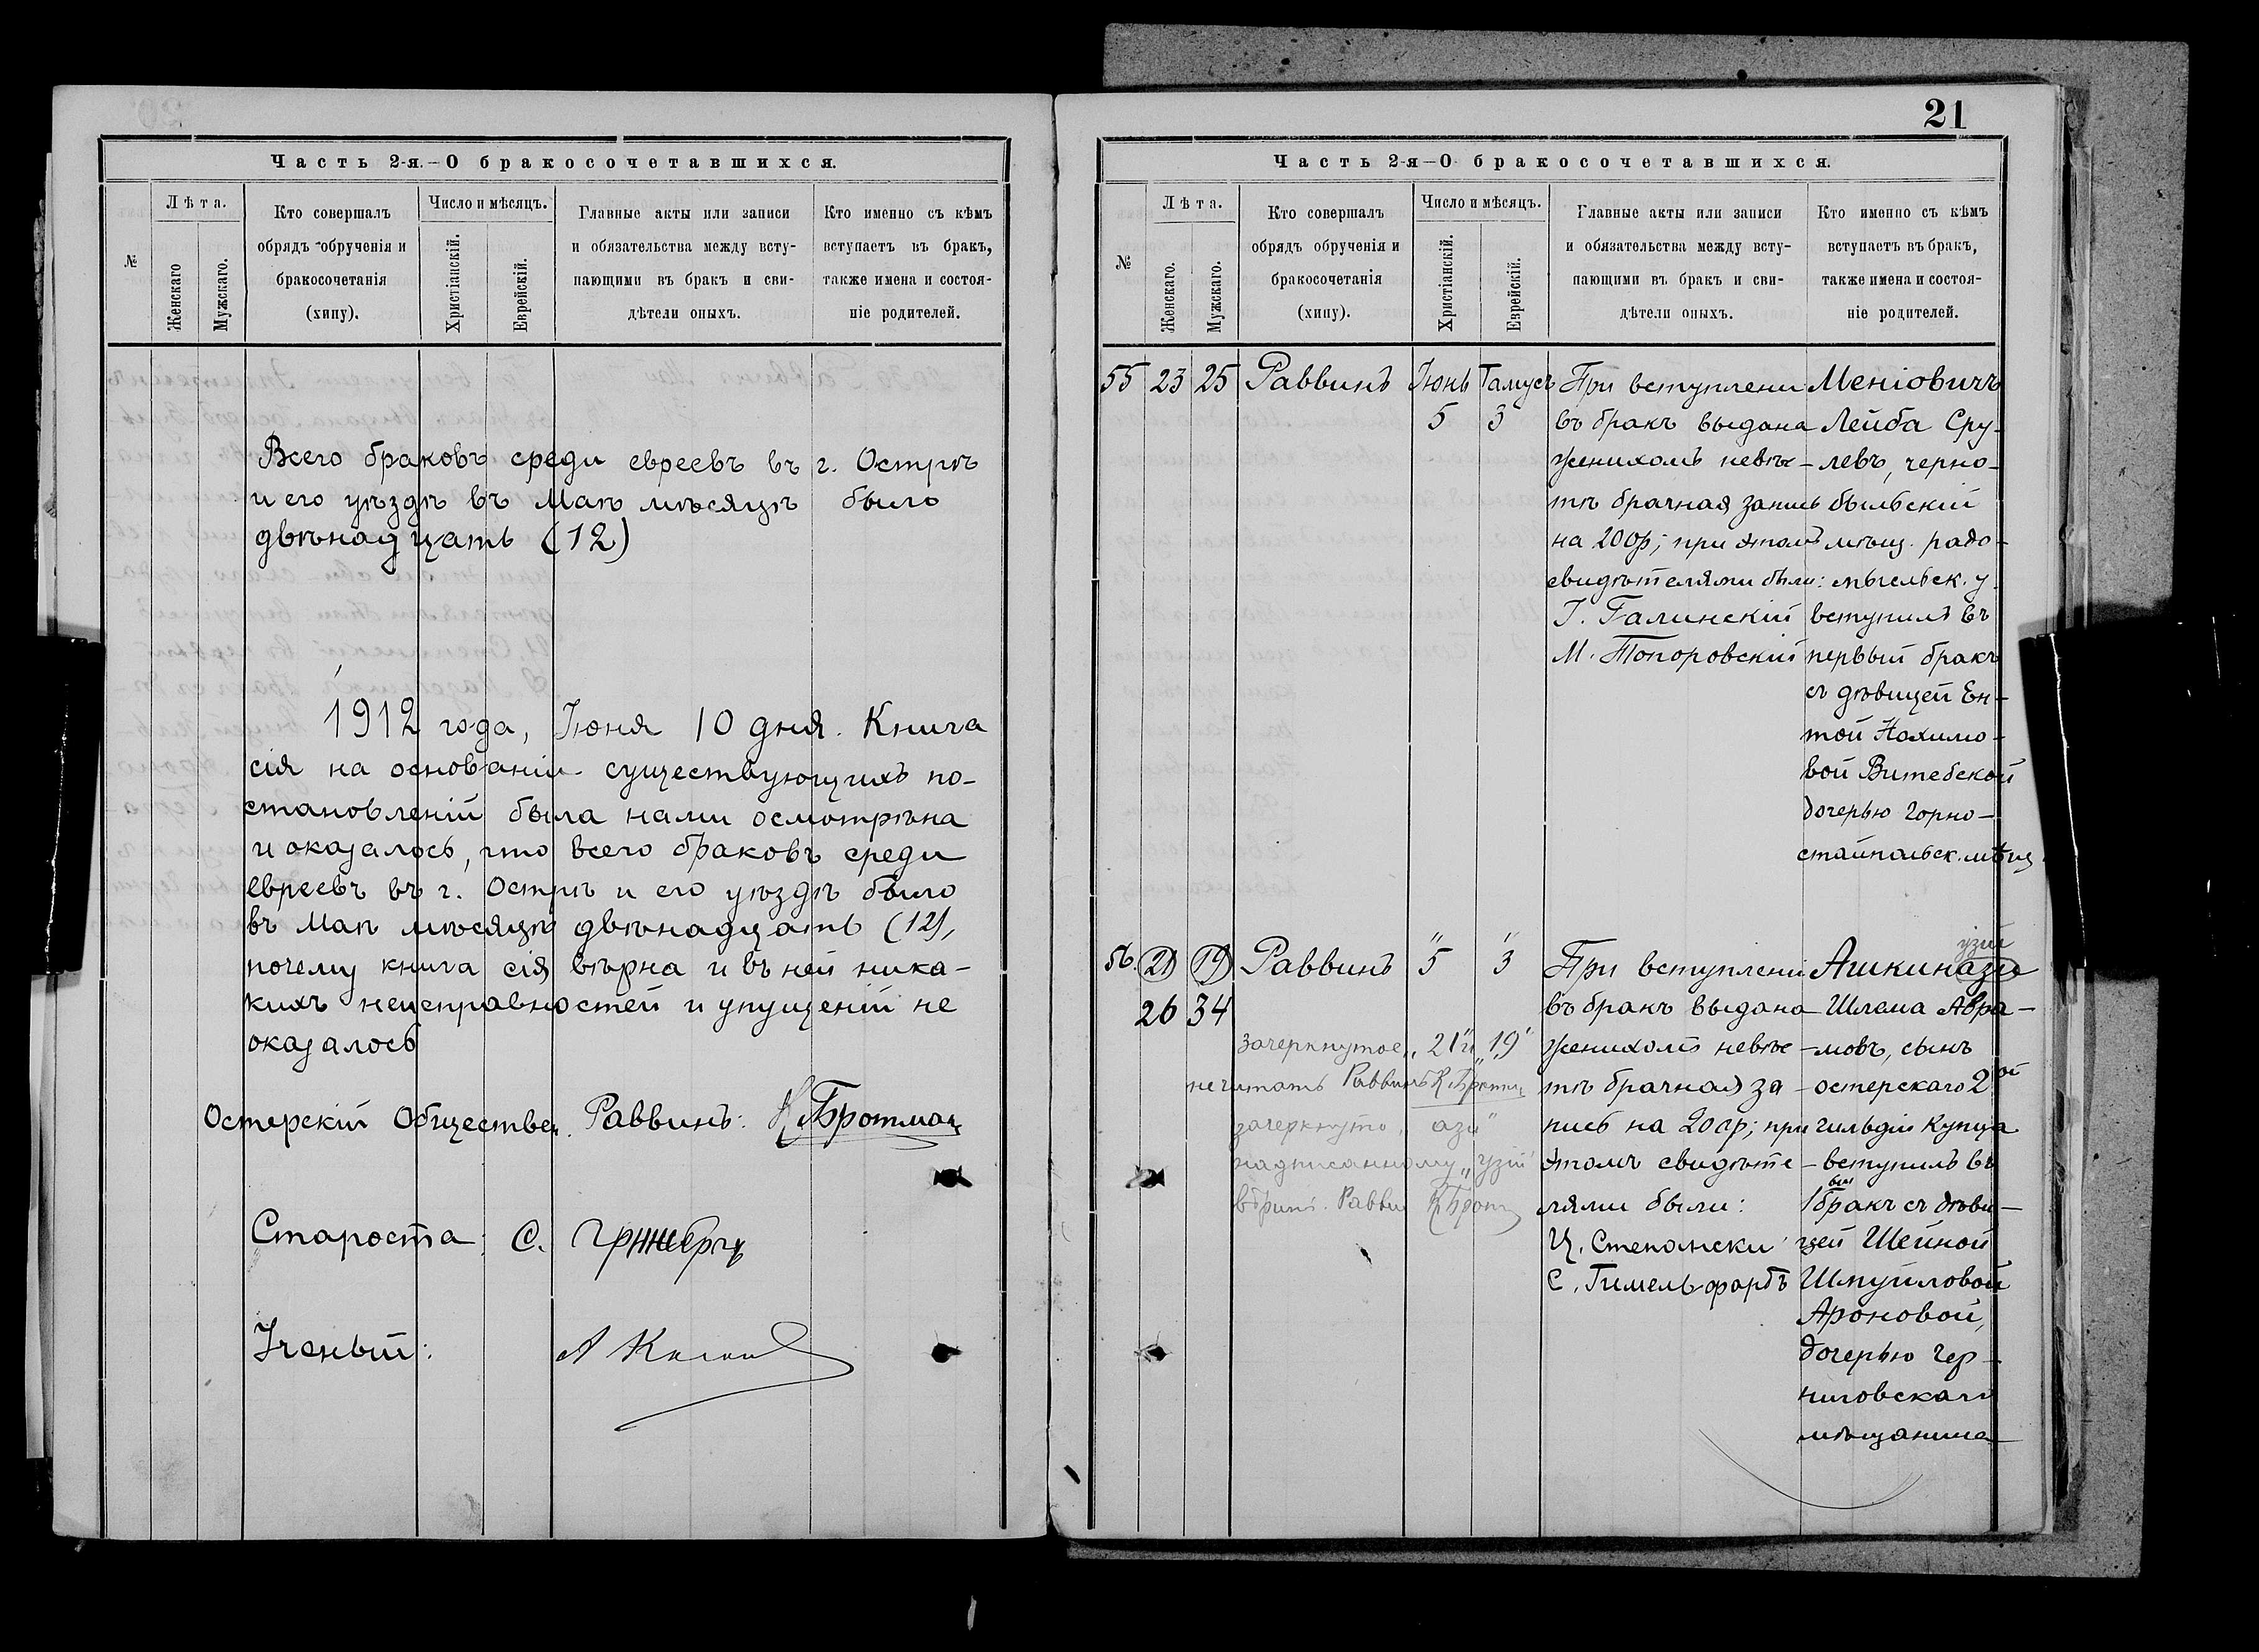 Часть 2-я.—О бракосочетавшихся.
№
Лѣта.
Женскаго
Мужскаго.
Кто совершалъ
обрядъ обрученія и
бракосочетанія
(хипу).
Число и мѣсяцъ.
Христіанскій.
Еврейскій.
Главные акты или записи
и обязательства между всту-
пающими въ бракъ и сви-
дѣтели оныхъ.
Кто именно съ кѣмъ
вступаетъ въ бракъ,
также имена и состоя-
ніе родителей.
Всего браковъ среди евреевъ въ г. Острѣ
и его уѣздѣ въ Маѣ мѣсяцѣ было
двѣнадцать (12)
1912 года, Іюня 10 дня. Книга
сія на основаніи существующихъ по-
становленій была нами осмотрѣна
и оказалось, что всего браковъ среди
евреевъ въ г. Острѣ и его уѣздѣ было
въ Маѣ мѣсяцѣ двѣнадцать (12),
почему книга сія вѣрна и въ ней ника-
кихъ неисправностей и упущеній не
оказалось
Остерскій Обществен. Раввинъ: Бротман
Староста: С.
Ученый: А
21
Часть 2-я—О бракосочетавшихся.
№
Лѣта.
Женскаго.
Мужскаго.
Кто совершалъ
обрядъ обрученія и
бракосочетанія
(хипу).
Число и мѣсяцъ.
Христіанскій.
Еврейскій.
Главные акты или записи
и обязательства между всту-
пающими въ бракъ и сви-
дѣтели оныхъ.
Кто именно съ кѣмъ
вступаетъ въ бракъ,
также имена и состоя-
ніе родителей.
55 23 25 Раввинъ Іюнь Тамусъ
5 3
При вступлени
въ бракъ выдана
женихомъ невѣс-
тѣ брачная запись
на 200р; при этомъ
свидѣтелями были:
Г. Галинскій
М. Топоровскій
Меніовичъ
Лейба Сру-
левъ, черно-
быльскій
мѣщ. радо-
мысльск. у.
вступилъ въ
первый бракъ
съ дѣвицей Ен-
той Нохимо-
вой Витебской
дочерью Горно-
стайпольск. мѣщ.
56. 21 19 Раввинъ 5 3
26 34
зачеркнутое „21 и 19"
не читать Раввинъ Бротм
зачеркнуто „ази"
надписанному „узи"
вѣрить. Равви Брот
При вступлені
въ бракъ выдана
женихомъ невѣс-
тѣ брачная за-
пись на 200р; при
этомъ свидѣте-
лями были:
Ц. Степански
С. Гимельфарбъ
узи
Ашкинази
Шлема Абра-
мовъ, сынъ
остерскаго 2ой
гильдіи Купца
вступилъ въ
1вый бракъ съ дѣви-
цей Шейной
Шмуйловой
Ароновой,
дочерью Чер-
ниговскаго
мѣщанина